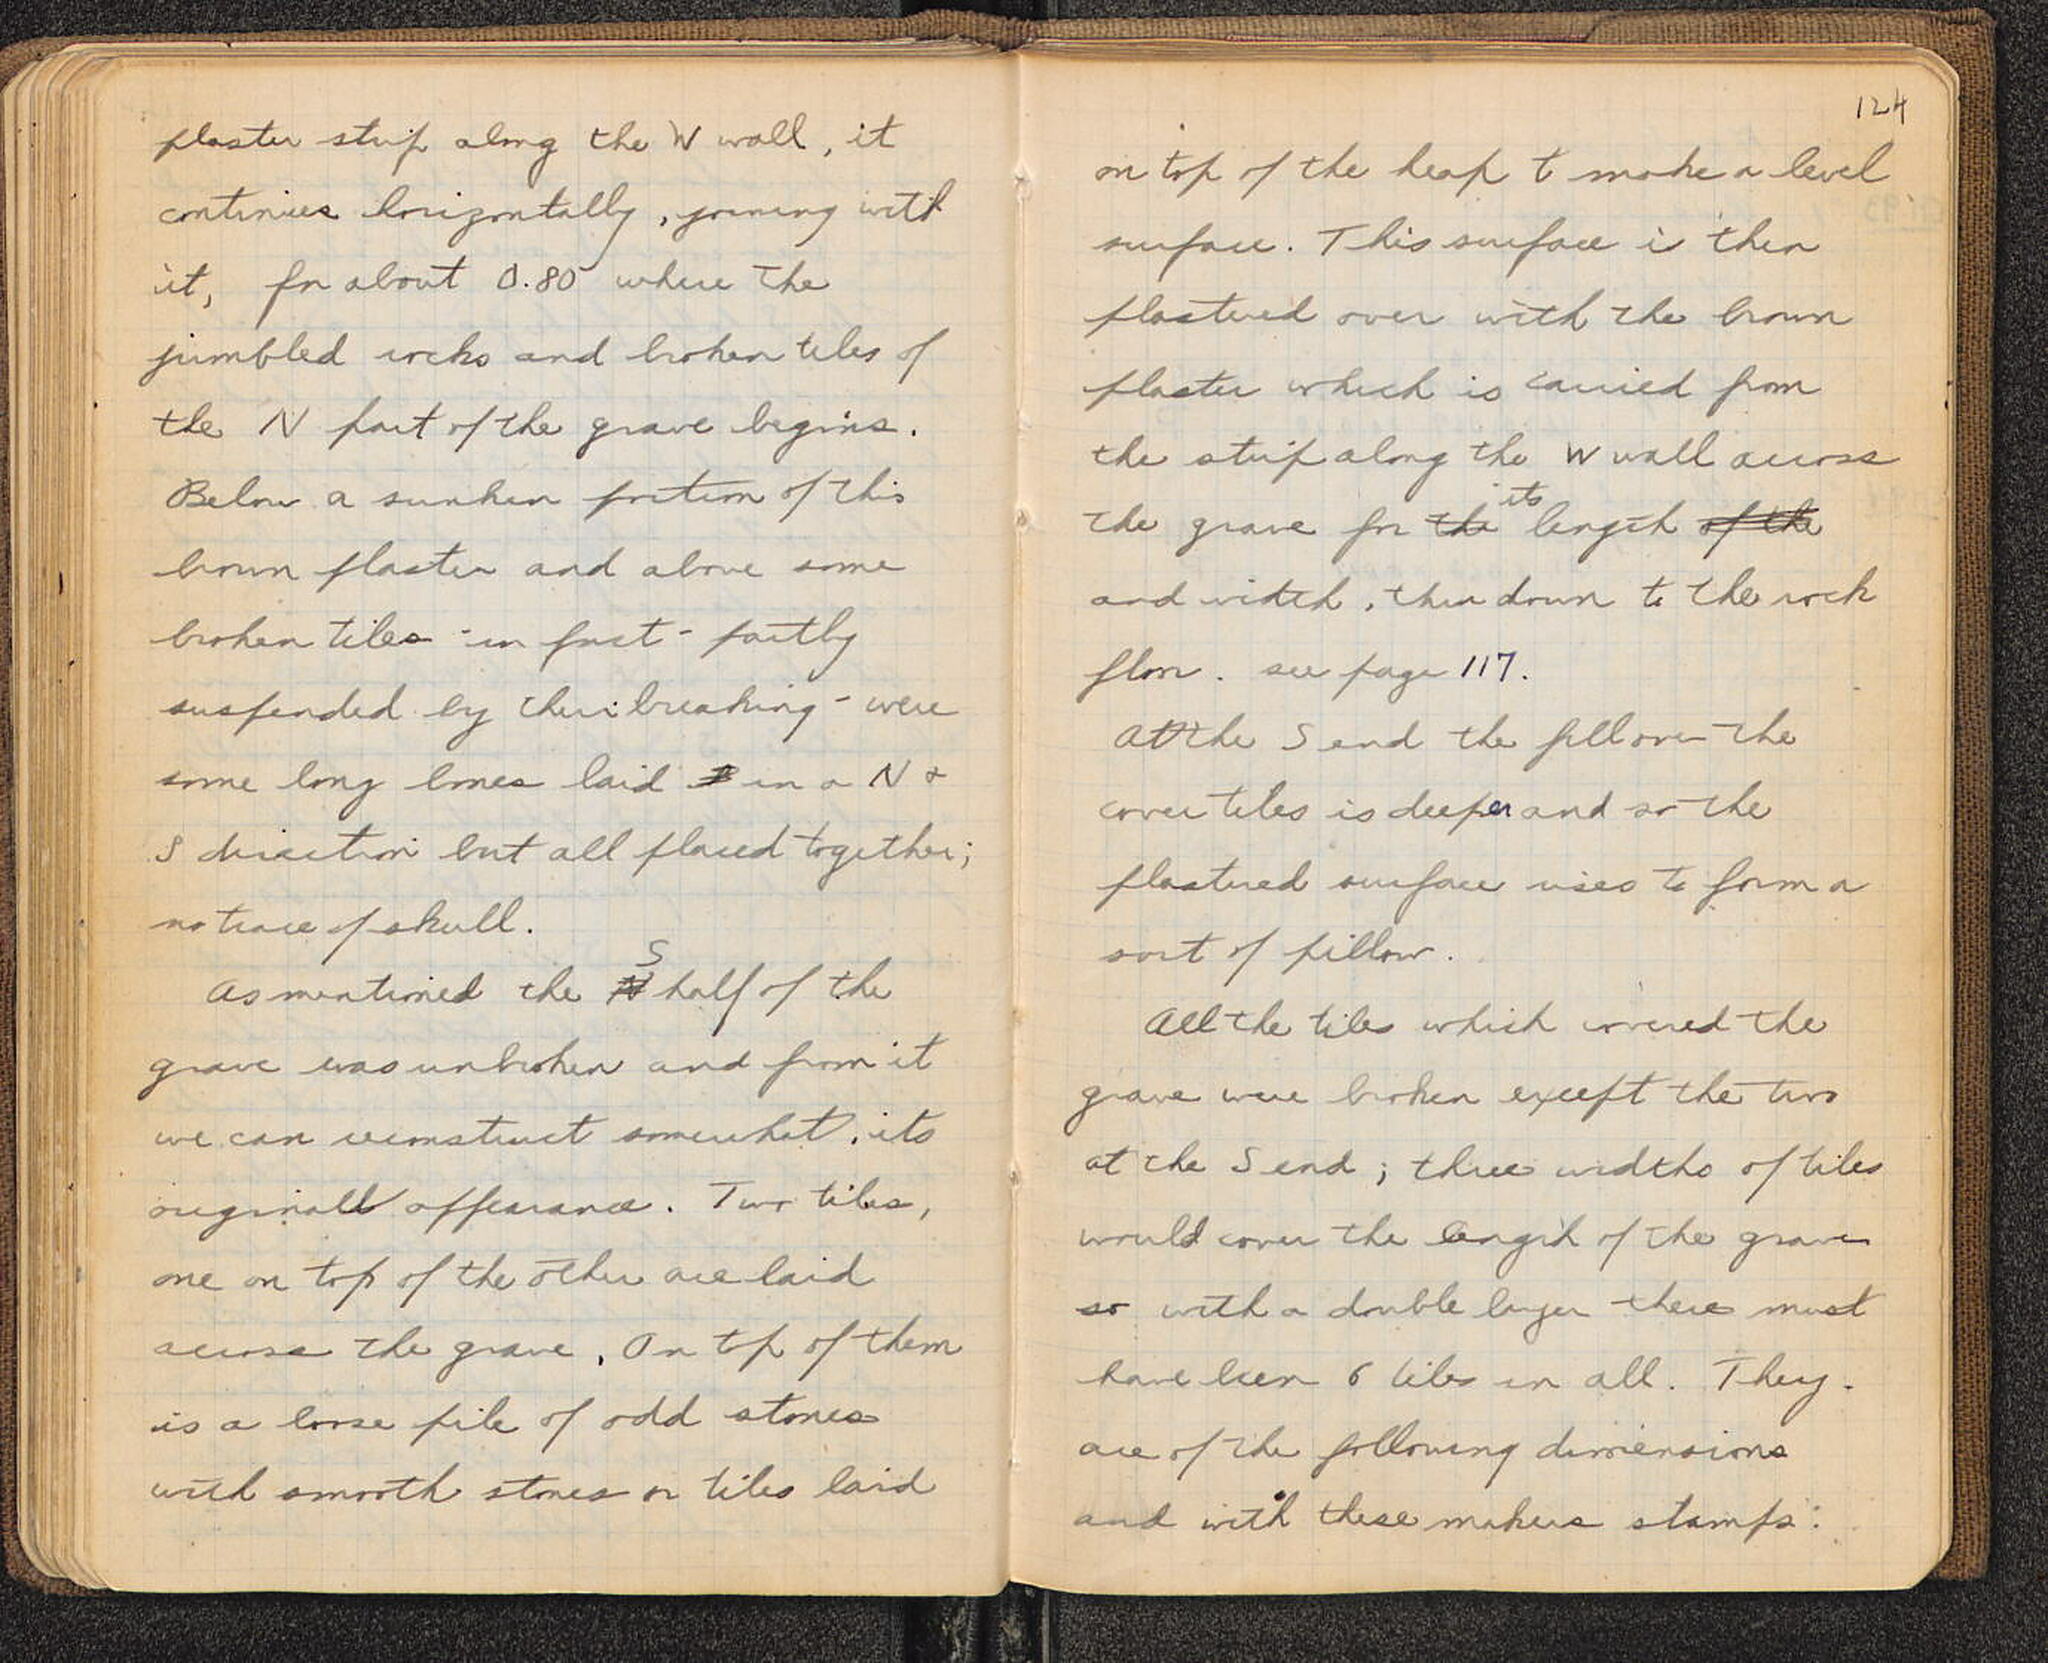 plaster strip along the W wall, it
continues horizontally, joining with
it, for about 0.80 where the
jumbled rocks and broken tiles of
the N part of the grave begins.
Below a sunken portion of this
brown plaster and above some
broken tiles - in fact - partly
suspended by their breaking - were
some long bones laid in a N &
S direction but all placed together;
no trace of skull.
As mentioned the N S half of the
grave was unbroken and from it
we can reconstruct somewhat, its
original appearance. Two tiles,
one on top of the other are laid
across the grave. On top of them
is a loose pile of odd stones
with smooth stones or tiles laid
124
on top of the heap to make a level
surface. This surface is then
plastered over with the brown
plaster which is carried from
the strip along the W wall across
the grave for the its length of the
and width, then down to the rock
floor. see page 117.
At the S end the fill over the
cover tiles is deeper and so the
plastered surface rises to form a
sort of pillow.
All the tiles which covered the
grave were broken except the two
at the S end; three widths of tiles
would cover the length of the grave
so with a double layer there must
have been 6 tiles in all. They
are of the following dimensions
and with these makers stamps: